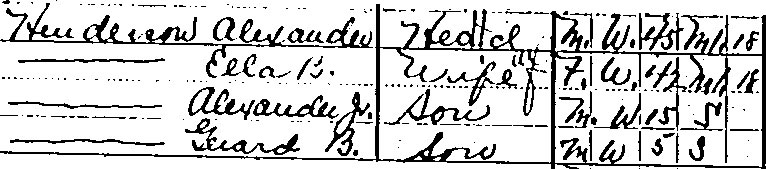 Henderson Alexander Head M. W. 45 M1. 18
Ella B. Wife F. W. 42 M1. 18
Alexander Jr. Son M. W. 15 S
Gerard B. Son M W 5 S